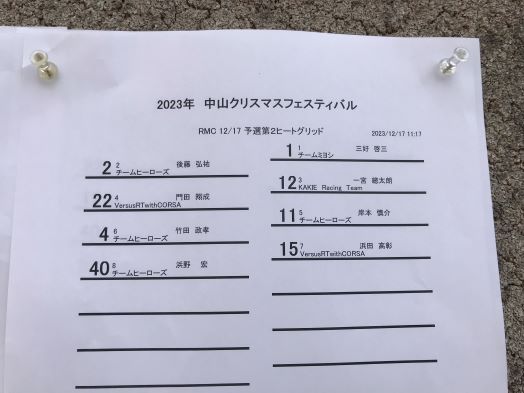 2023年 中山クリスマスフェスティバル
RMC 12/17 予選第2ヒートグリッド
2023/12/17 11:17
1 1 三好 啓三
チームミヨシ
2 2 後藤 弘祐
チームヒーローズ
12 3 一宮 總太朗
KAKIE Racing Team
22 4 門田 翔成
VersusRTwithCORSA
11 5 岸本 慎介
チームヒーローズ
4 6 竹田 政孝
チームヒーローズ
15 7 浜田 高彰
VersusRTwithCORSA
40 8 浜野 宏
チームヒーローズ